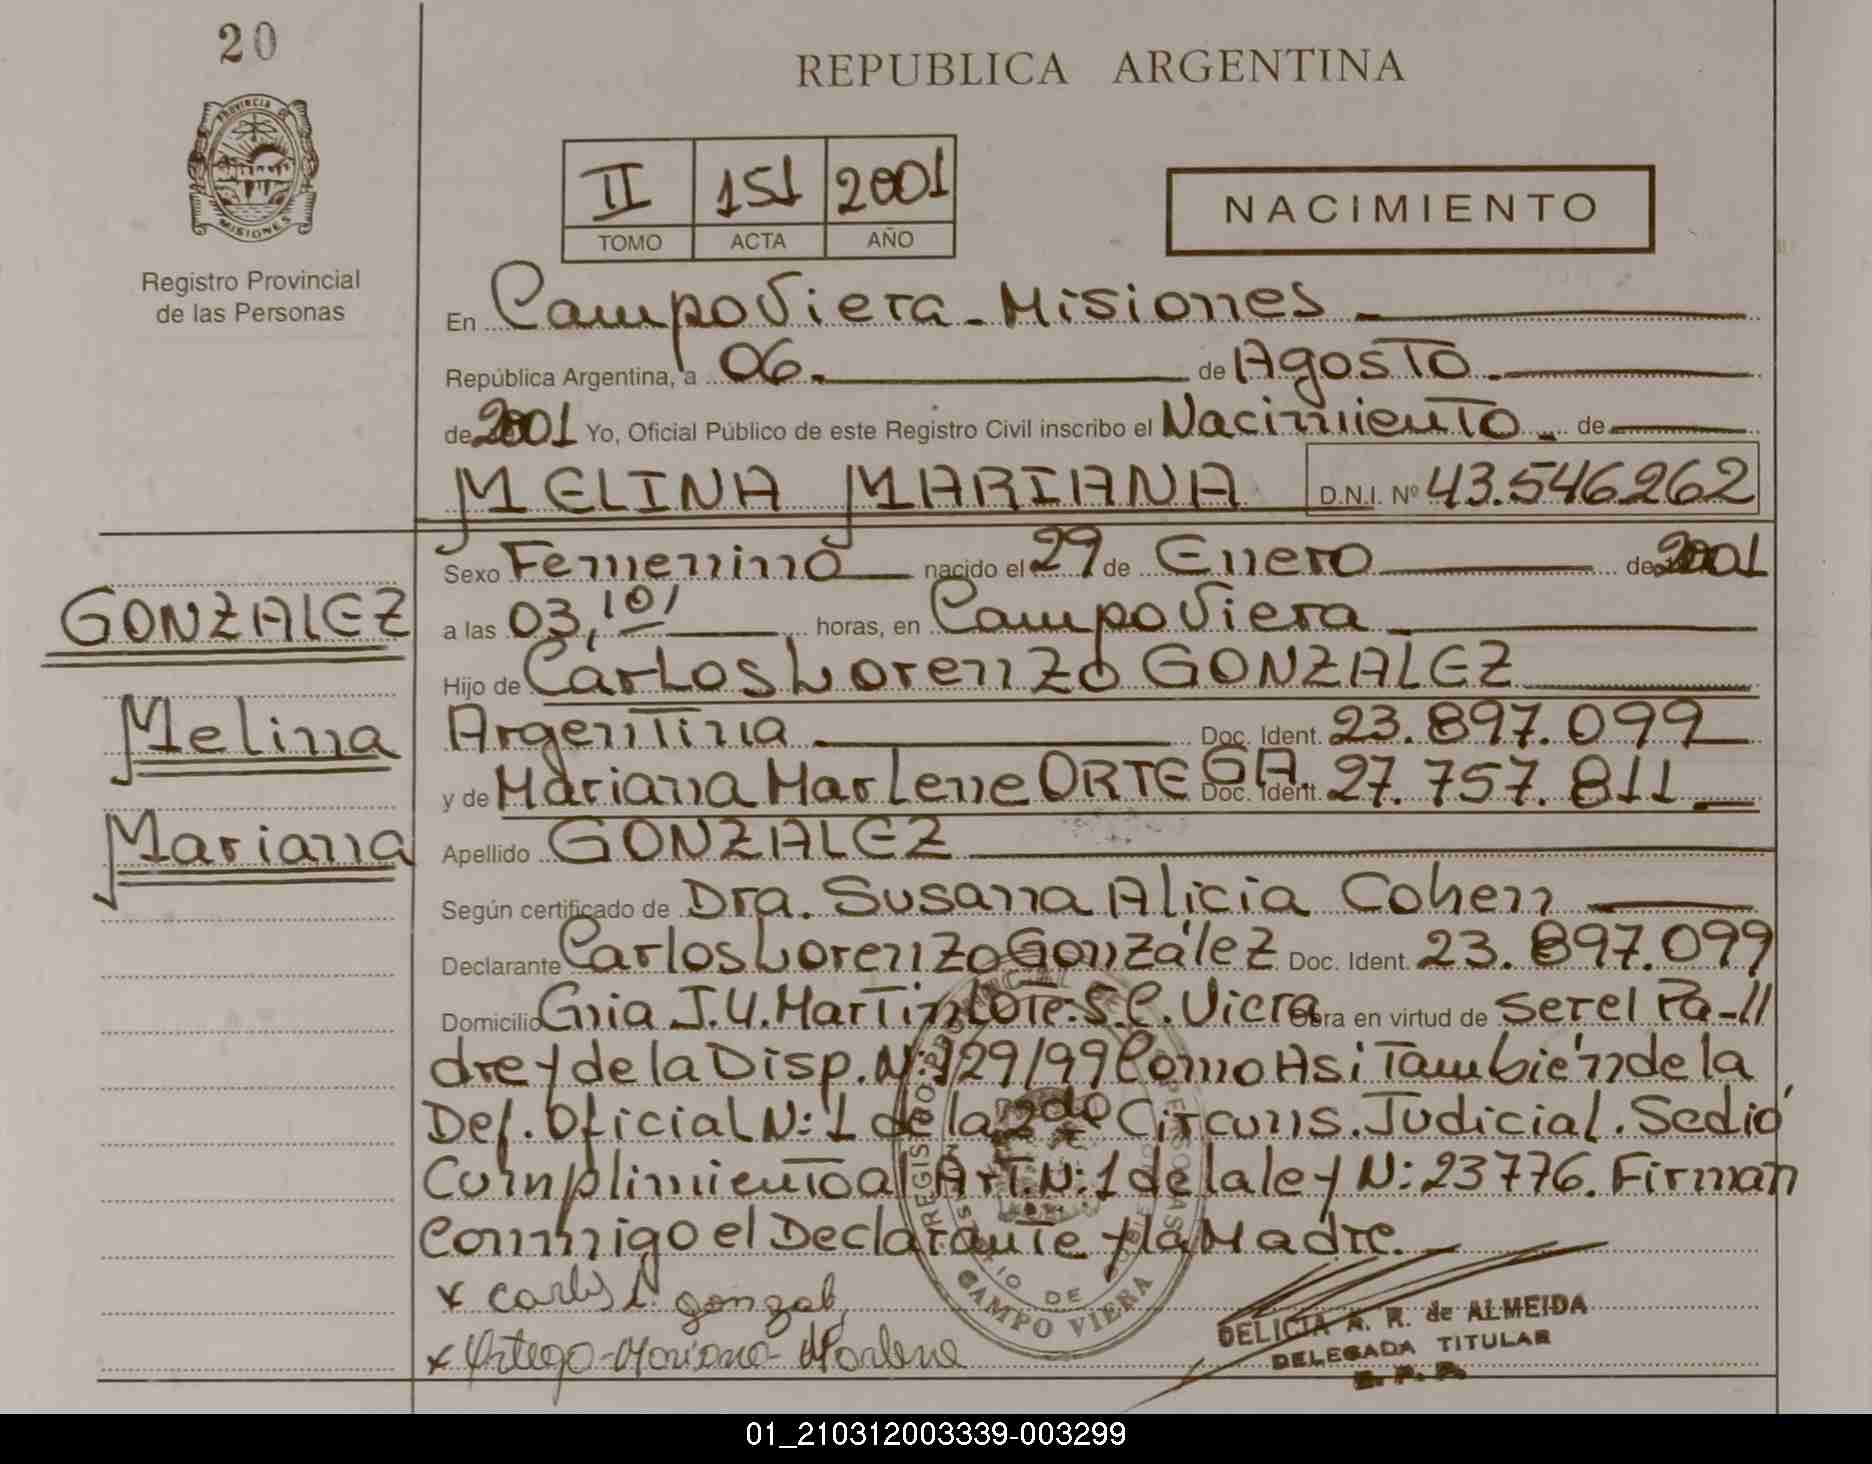 20
PROVINCIA DE
MISIONES
Registro Provincial
de las Personas
REPUBLICA ARGENTINA
II 151 2001
TOMO ACTA AÑO
NACIMIENTO
En Campo Viera - Misiones
República Argentina, a 06. de Agosto
de 2001 Yo, Oficial Público de este Registro Civil inscribo el Nacimiento. de
MELINA MARIANA D.N.I. Nº 43.546262
Sexo Femenino nacido el 29 de Enero de 2001
a las 03, horas, en Campo Viera
GONZALEZ
Hijo de Carlos Lorenzo GONZALEZ
Melina
Argentina Doc. Ident. 23.897.099
y de Mariana Marlene ORTEGA Doc. Ident. 27.757.811
Mariana
Apellido GONZALEZ
Según certificado de Dra. Susana Alicia Cohen
Declarante Carlos Lorenzo González Doc. Ident. 23.897.099
Domicilio J.U. Martin Lote: 5. C. Viera Obra en virtud de ser el Pa-//
dre y de la Disp. N: 129/99 Como Asi También de la
Def. Oficial N: 1 de la 2do Circuns. Judicial. Se dió
Cumplimiento al Art. N: 1 de la ley N: 23776. Firman
Conmigo el Declarante y la Madre.
x Carlos L. gonzal
x Ortego Mariana Marlene
CAMPO VIERA
DELICIA A. R. de ALMEIDA
DELEGADA TITULAR
01_210312003339-003299